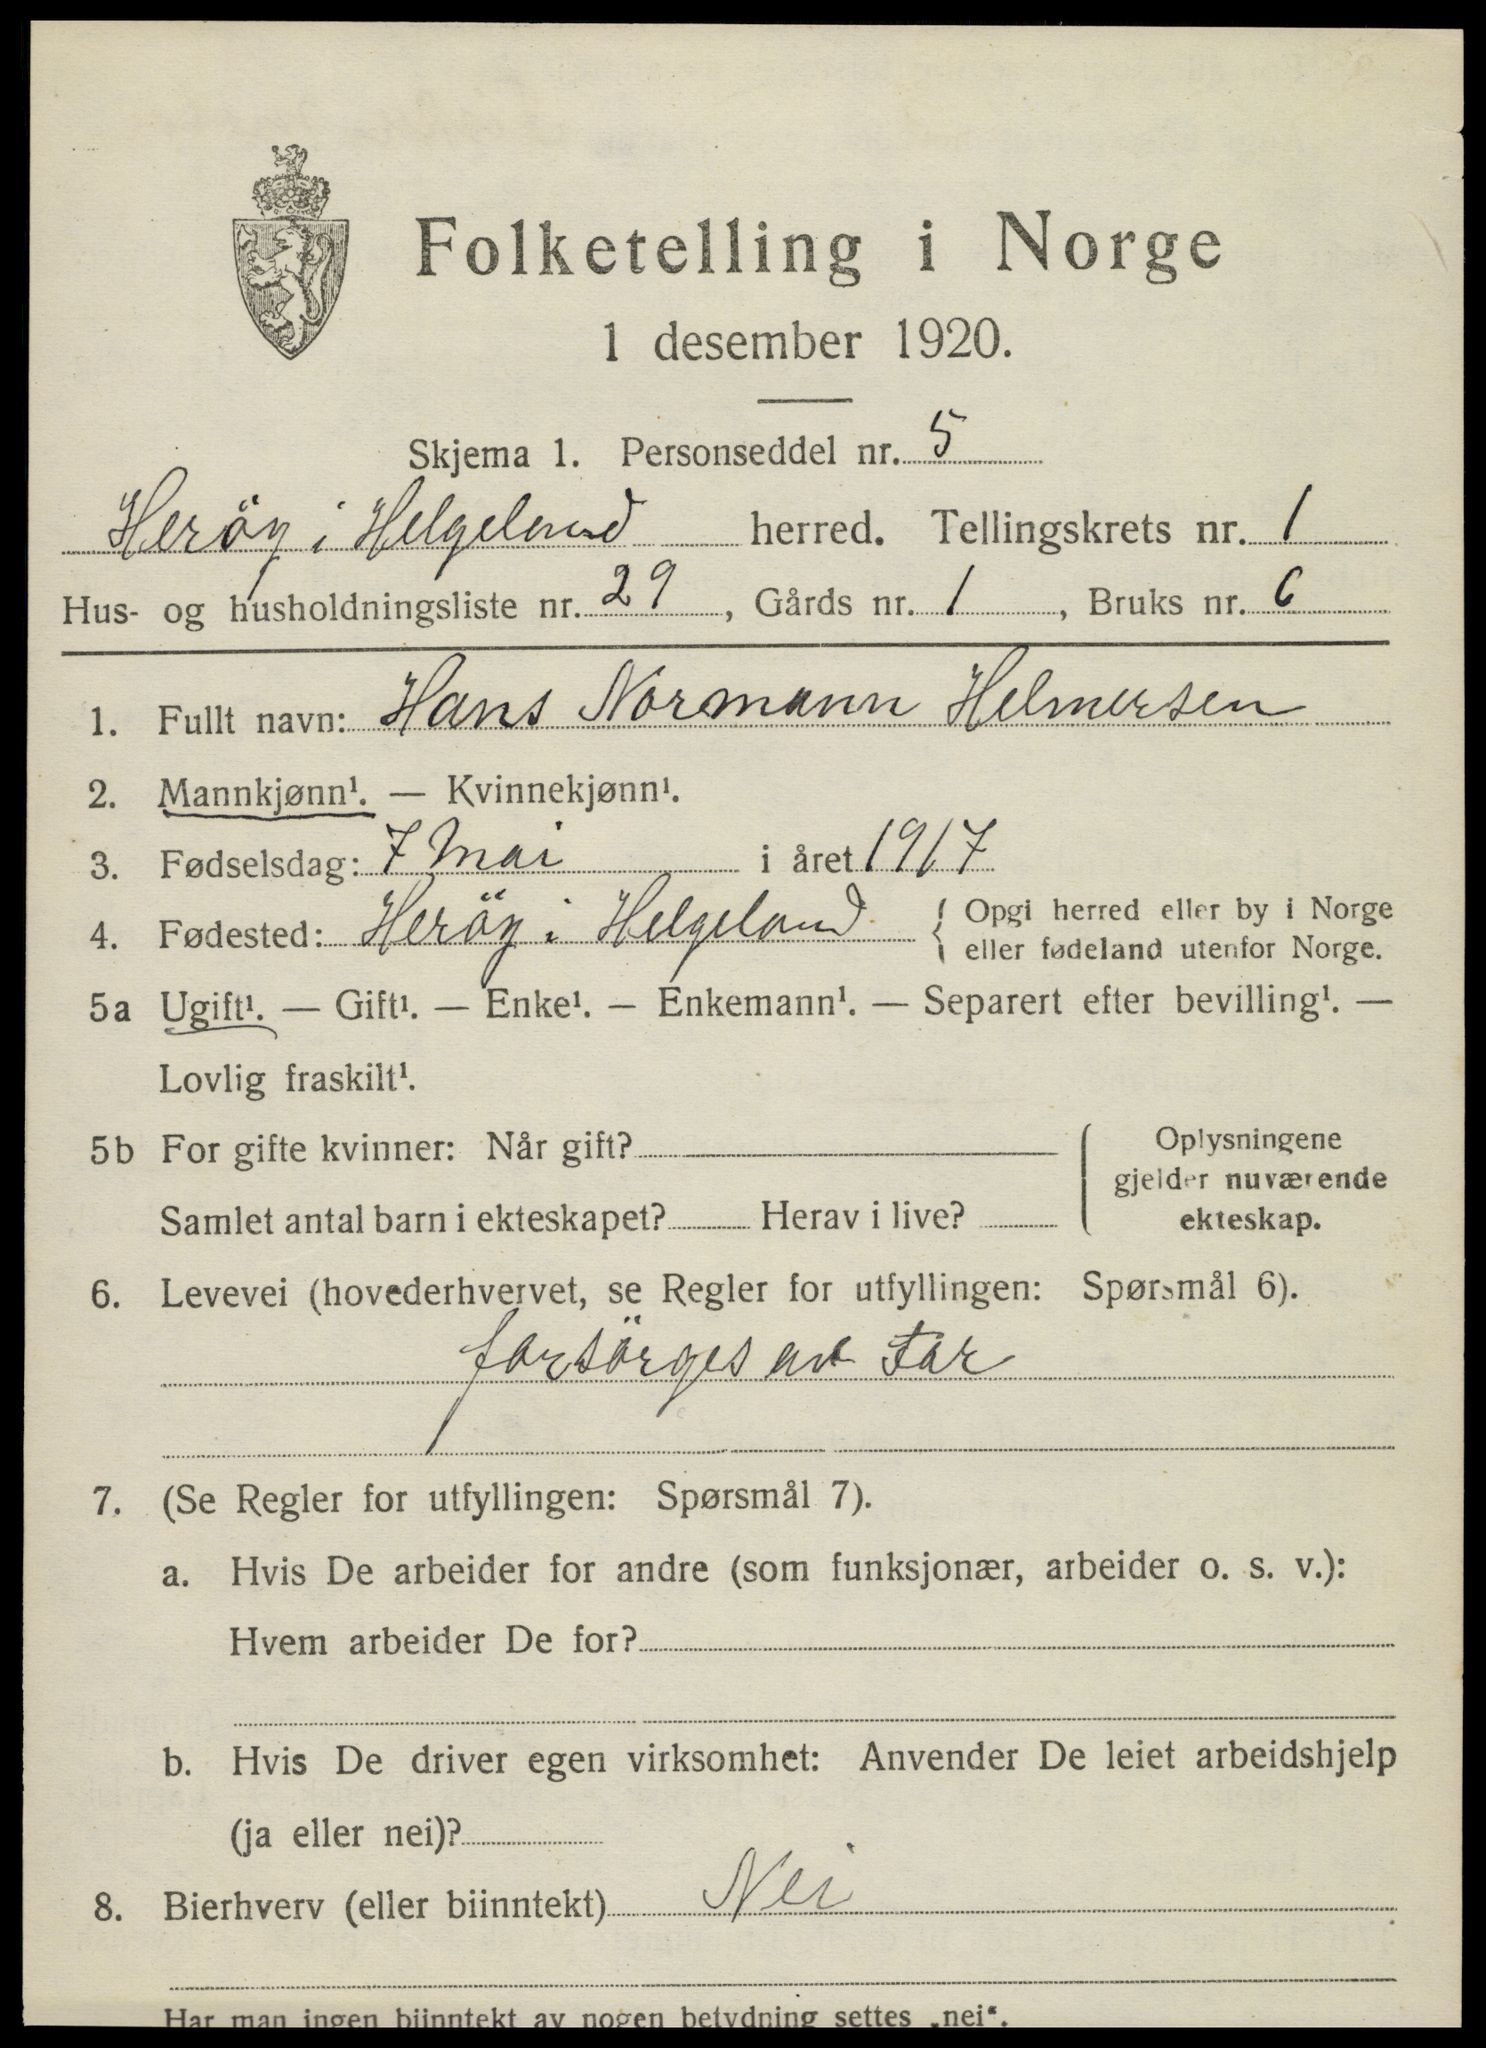 Folketelling i Norge
1 desember 1920.
Skjema 1. Personseddel nr. 5
Heröy i Helgeland herred. Tellingskrets nr. 1
Hus- og husholdningsliste nr. 29, Gårds nr. 1, Bruks nr. 6
1. Fullt navn: Hans Normann Helmersen
2. Mannkjønn¹. — Kvinnekjønn¹.
3. Fødselsdag: 7 Mai i året 1917
4. Fødested: Heröy i Helgeland { Opgi herred eller by i Norge
eller fødeland utenfor Norge.
5a Ugift¹. — Gift¹. — Enke¹. — Enkemann¹. — Separert efter bevilling¹. —
Lovlig fraskilt¹.
5b For gifte kvinner: Når gift?
Samlet antal barn i ekteskapet? Herav i live?
Oplysningene
gjelder nuværende
ekteskap.
6. Levevei (hovederhvervet, se Regler for utfyllingen: Spørsmål 6).
forsörges av Far
7. (Se Regler for utfyllingen: Spørsmål 7).
a. Hvis De arbeider for andre (som funksjonær, arbeider o. s. v.):
Hvem arbeider De for?
b. Hvis De driver egen virksomhet: Anvender De leiet arbeidshjelp
(ja eller nei)?
8. Bierhverv (eller biinntekt) Nei
Har man ingen biinntekt av nogen betydning settes „nei“.